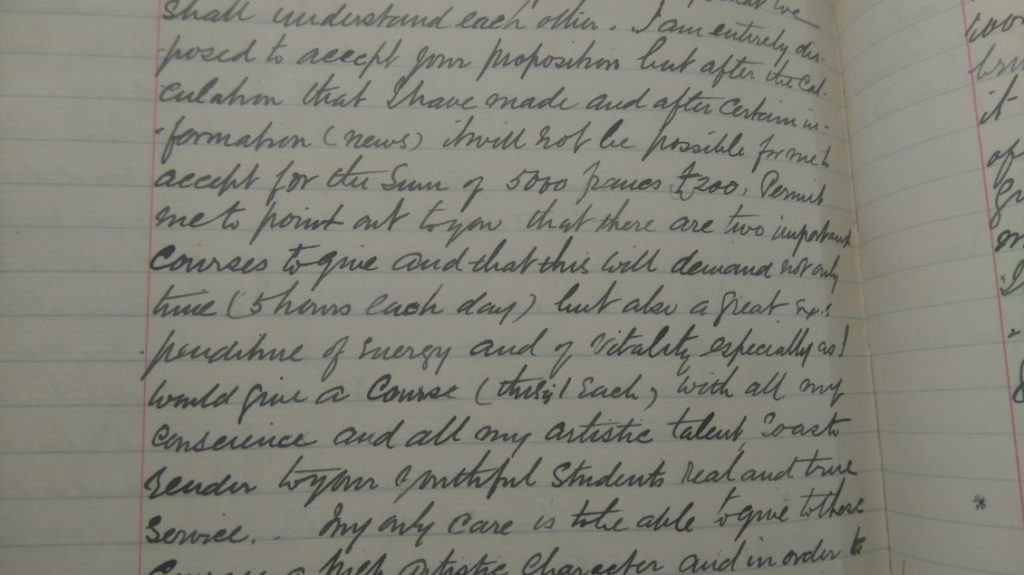 that we
shall understand each other. I am entirely dis-
-posed to accept your proposition but after the cal-
-culation that I have made and after certain in-
-formation (news) it will not be possible for me to
accept for the Sum of 5000 francs £200. Permit
me to point out to you that there are two important
Courses to give and that this will demand not only
time (5 hours each day) but also a great ex-
-penditure of Energy and of Vitality, especially as I
would give a Course (this is I each) with all my
Conscience and all my artistic talent, so as to
render to your youthful Students real and true
Service.. My only Care is to be able to give to those
Courses a high artistic Character and in order to
it
of